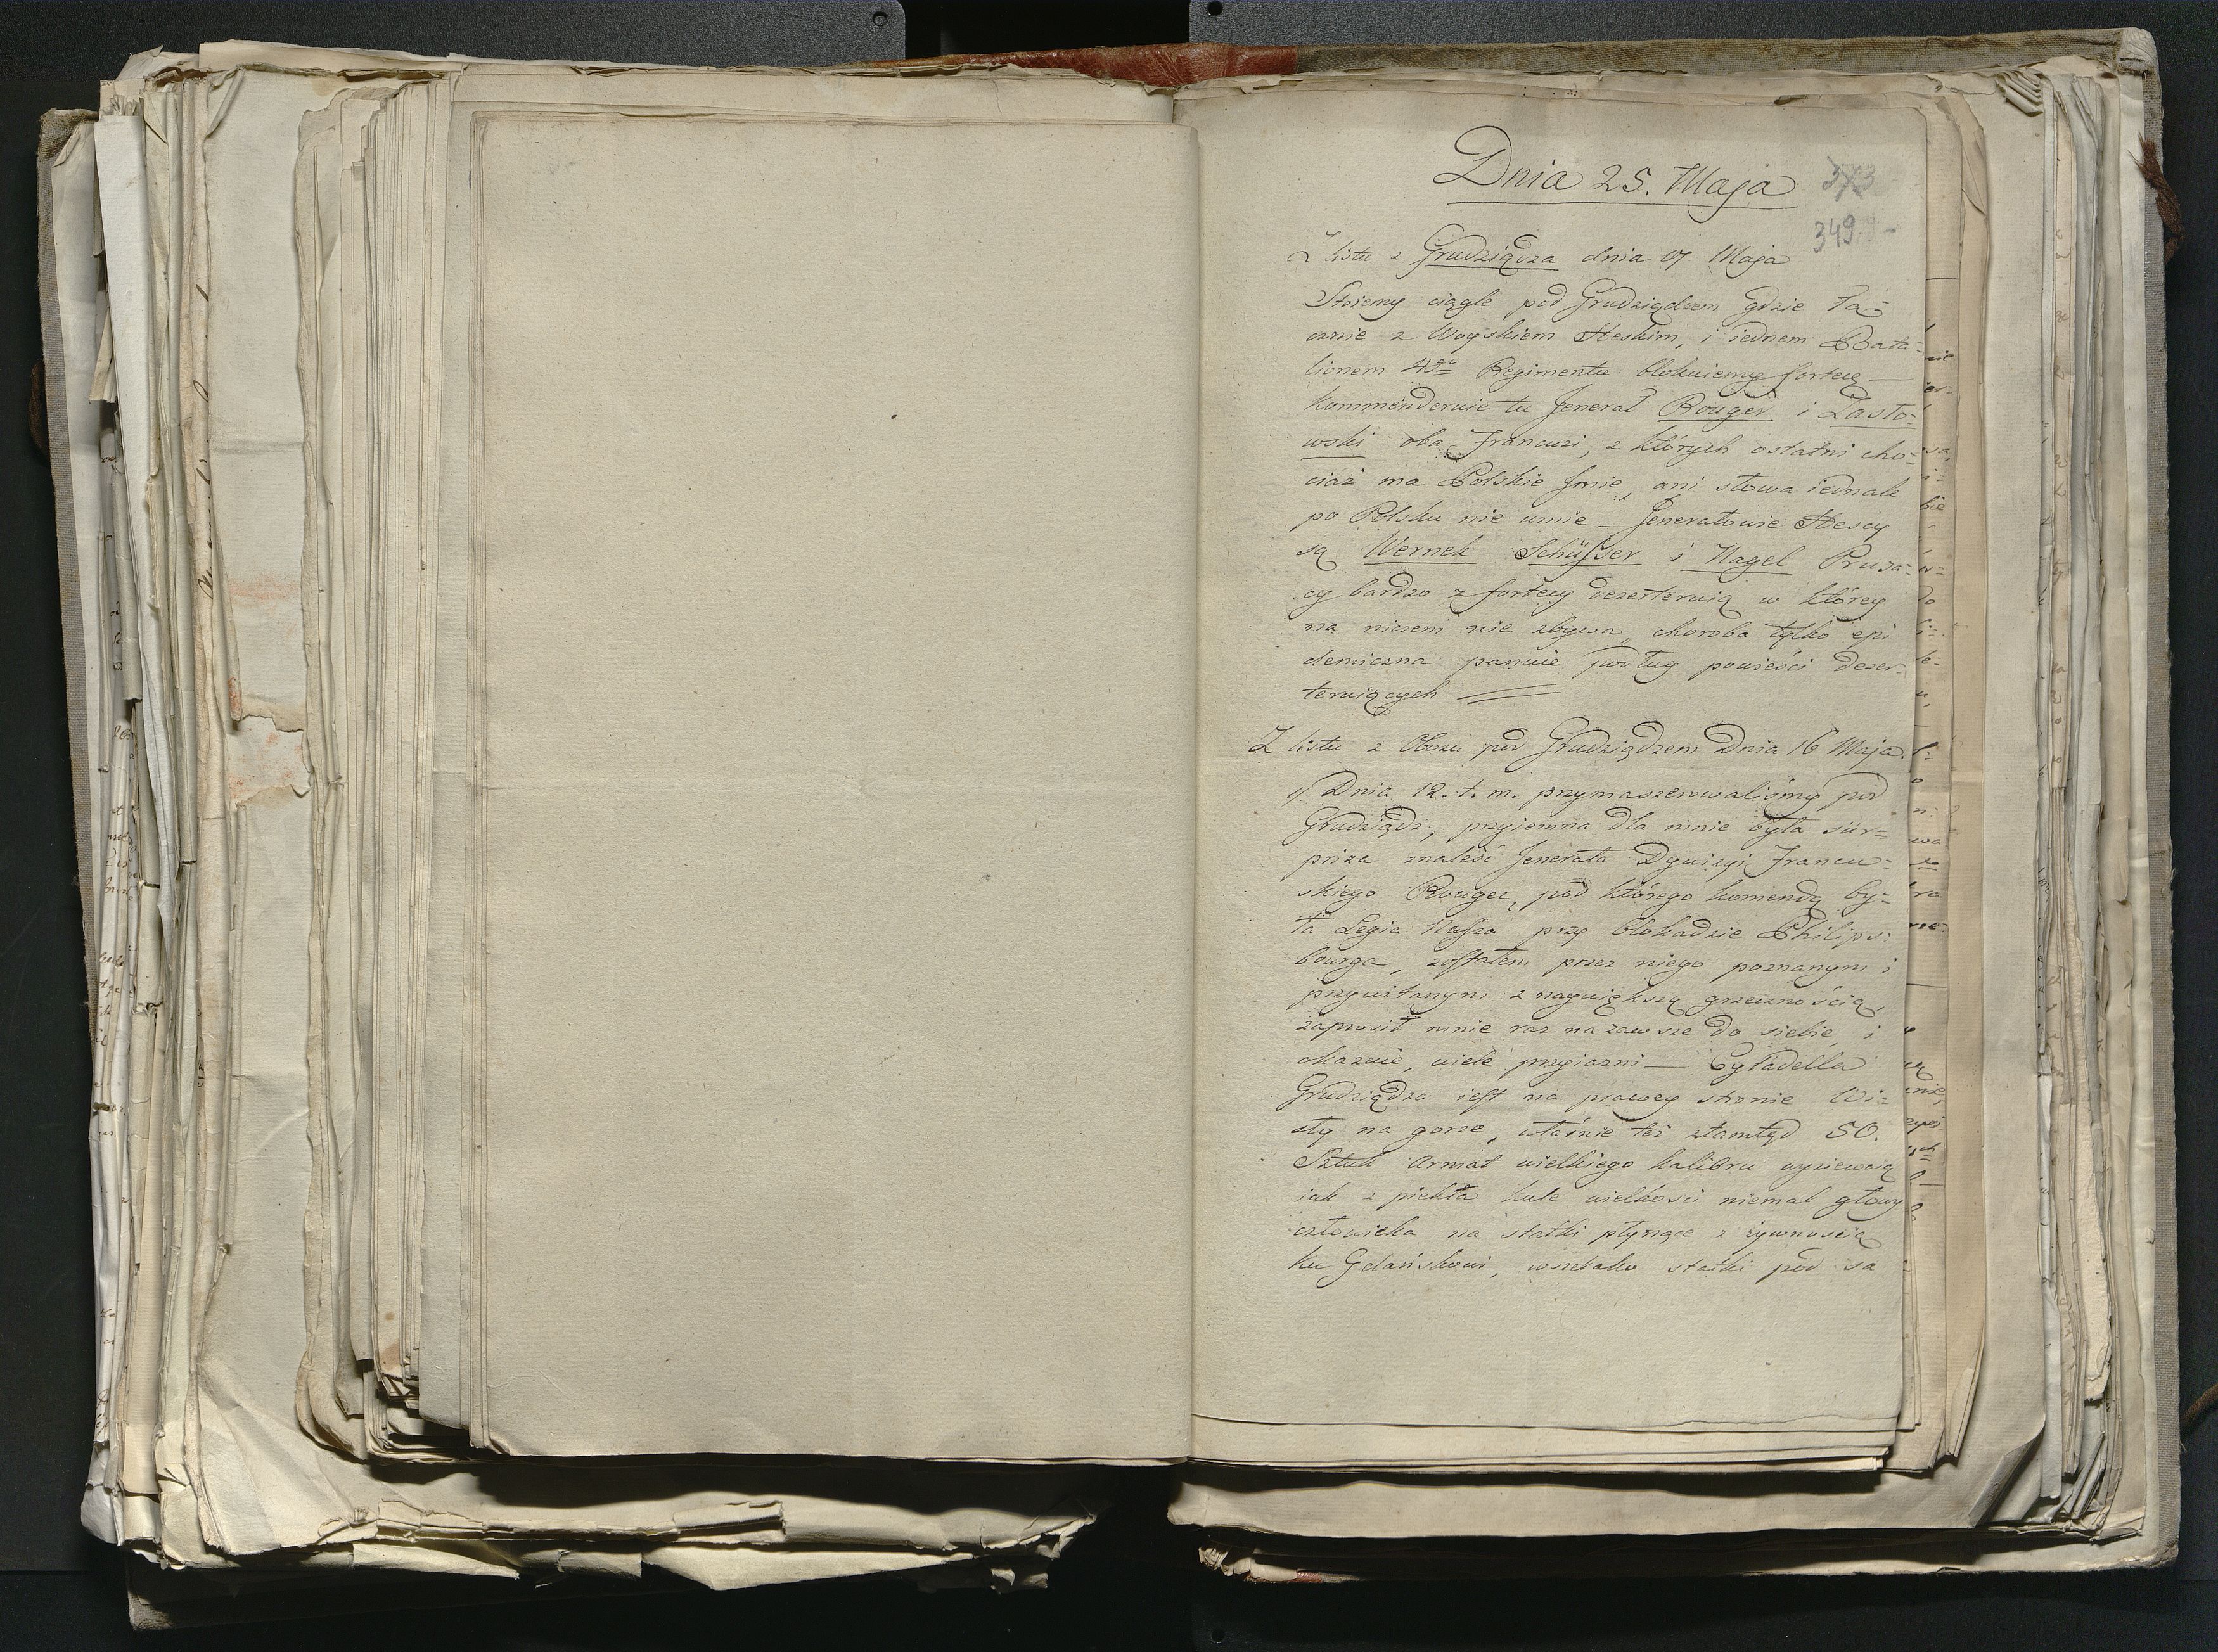 Dnia 25. Maja
373
349
Z listu z Grudziądza dnia 17 Maja
Stoiemy ciągle pod Grudziądzem gdzie łą=
cznie z Woyskiem Heskim, i iednem Bata=
lionem 4go Regimentu blokuiemy fortecę —
kommenderuie tu Jenerał Rouger i Zasto=
wski oba Francuzi, z których ostatni cho=
ciaż ma Polskie Jmie, ani słowa iednak
po Polsku nie umie — Jenerałowie Hescy
są Wernek Schüsser i Nagel Prusa=
cy bardzo z fortecy dezerteruią w którey
na niczem nie zbywa, choroba tylko epi
demiczna panuie podług powieści dezer=
teruiących
Z listu z Obozu pod Grudziądzem Dnia 16 Maja.
Dnia 12. t. m. przymaszerowaliśmy pod
Grudziądz, przyiemna dla mnie była sur=
priza znaleść Jenerała Dywizyi Francu=
skiego Rouger, pod którego komendą by=
ła Legia Nasza przy blokadzie Philips=
bourga, zostałem przez niego poznanym i
przywitanym z naywiększą grzecznością,
zaprosił mnie raz na zawsze do siebie, i
okazuie, wiele przyiazni — Cytadella
Grudziądza iest na prawey stronie Wi=
sły na gorze, właśnie też ztamtąd 50.
Sztuk armat wielkiego kalibru wyziewaią
iak z piekła kule wielkości niemal głowy
człowieka na statki płynące z żywnością
ku Gdańskowi, wszelako statki pod sa